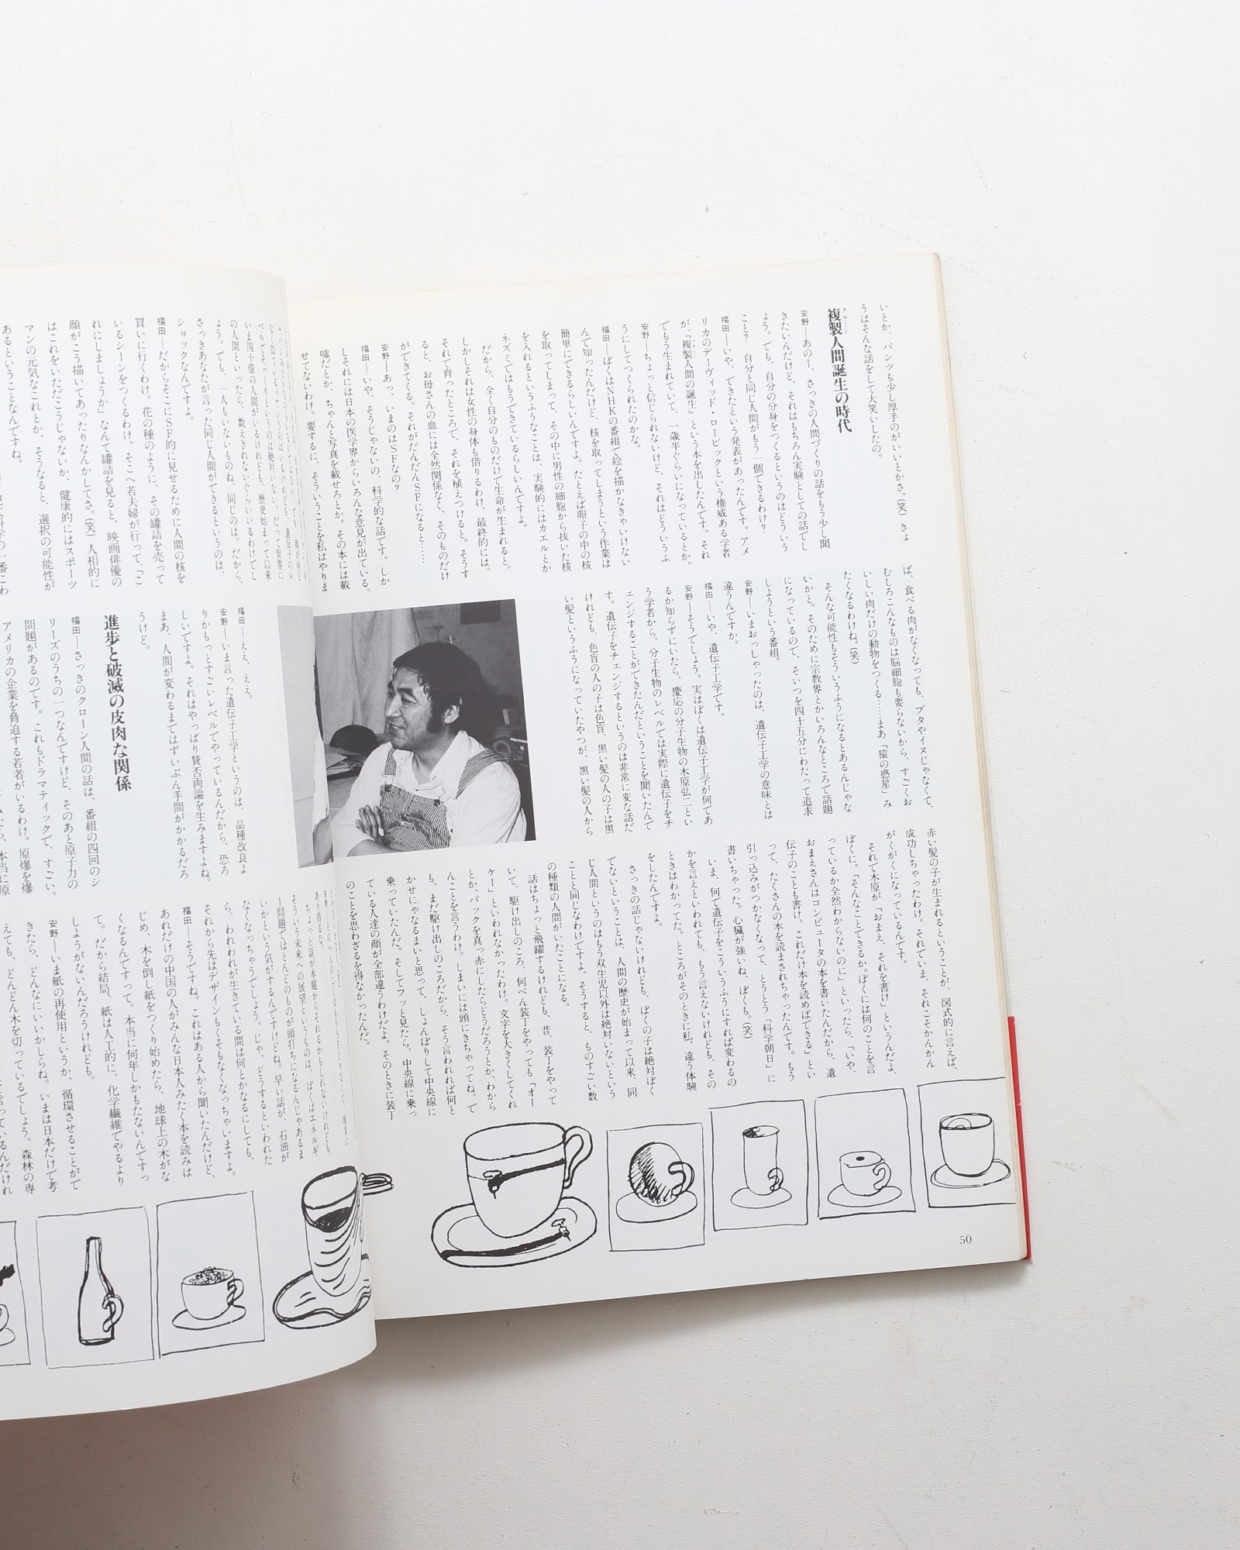 いとか、パンツも少し厚手のがいいとかさ。(笑) きょ
うはそんな話をして大笑いしたの。
複製人間誕生の時代
安野―あの―、さっきの人間づくりの話をもう少し聞
きたいんだけど、それはもちろん実験としての話でし
ょう。でも、自分の分身をつくるというのはどういう
こと? 自分と同じ人間がもう一個できるわけ?
福田―いや、できたという発表があったんです。アメ
リカのデーヴィッド・ロービックという権威ある学者
が、『複製人間の誕生』という本を出したんです。それ
でもう生まれていて、一歳半ぐらいになっているとか。
安野―ちょっと信じられないけど、それはどういうふ
うにしてつくられたのかな。
福田―ぼくはNHKの番組で絵を描かなきゃいけない
んで知ったんだけど、核を取ってしまうという作業は
簡単にできるらしいんですよ。たとえば卵子の中の核
を取ってしまって、その中に男性の細胞から抜いた核
を入れるというふうなことは、実験的にはカエルとか
ネズミではもうできているらしいんですよ。
だから、全く自分のものだけで生命が生まれると。
しかしそれは女性の身体も借りるわけ、最終的には。
それで育ったところで、それを植えつけると。そうす
ると、お母さんの血には全然関係なく、そのものだけ
ができてくる。それがだんだんSFになると……
安野―あっ、いまのはSFなの?
福田―いや、そうじゃないの、科学的な話です。しか
しそれには日本の医学界からいろんな意見が出ている。
嘘だとか、ちゃんと写真を載せろとか。その本には載
せてないわけ。要するに、そういうことを私はやりま
ば、食べる肉がなくなっても、ブタやイヌじゃなくて、
むしろこんなものは脳細胞も要らないから、すごくお
いしい肉だけの動物をつくる……まあ「猿の惑星」み
たくなるわけね。(笑)
そんな可能性もそういうふうになるとあるんじゃな
いかと。そのために宗教界とかいろんなところで話題
になっているので、そいつを四十五分にわたって追求
しようという番組。
安野―いまおっしゃったのは、遺伝子工学の意味とは
違うんですか。
福田―いや、遺伝子工学です。
安野―そうでしょう。実はぼくは遺伝子工学が何であ
るか知らずにいたら、慶応の分子生物の木原弘二とい
う学者から、分子生物のレベルでは実際に遺伝子をチ
ェンジすることができたんだということを聞いたんで
す。遺伝子をチェンジするというのは非常に変な話だ
けれども、色盲の人の子は色盲、黒い髪の人の子は黒
い髪というふうになっていたやつが、黒い髪の人から
赤い髪の子が生まれるということが、図式的に言えば、
成功しちゃったわけ。それでいま、それこそかんかん
がくがくになっているんです。
それで木原が「おまえ、それを書け」というんだよ、
ぼくに。「そんなことできるか。ぼくには何のことを言
っているか全然わからないのに」といったら、「いや、
おまえさんはコンピュータの本を書いたんだから、遺
伝子のことも書け。これだけ本を読めばできる」とい
って、たくさんの本を読まされちゃったんです。もう
引っ込みがつかなくなって、とうとう「科学朝日」に
書いちゃった。心臓が強いね、ぼくも。(笑)
いま、何で遺伝子をこういうふうにすれば変わるの
かを言えといわれても、もう言えないけれども、その
ときはわかってた。ところがそのときに私、違う体験
をしたんですよ。
さっきの話じゃないけれども、ぼくの子は絶対ぼく
でないということは、人間の歴史が始まって以来、同
じ人間というのはもう双生児以外は絶対いないという
ことと同じなわけですよ。そうすると、ものすごい数
の種類の人間がいたことになる。
話はちょっと飛躍するけれども、昔、装丁をやって
いて、駆け出しのころ、何べん装丁をやっても「オー
ケー」といわれなかったわけ。文字を大きくしてくれ
とか、バックを真っ赤にしたらどうだろうとか、わから
んことを言うわけ。しまいには頭にきちゃってね。で
も、まだ駆け出しのころだから、そう言われれば何と
かせにゃなるまいと思って、しょんぼりして中央線に
乗っていたんだ。そしてフッと見たら、中央線に乗っ
ている人達の顔が全部違うわけだよ。そのときに装丁
のことを思わざるを得なかったんだ。
50
いま四十億の人間がいるけれども、歴史始まって以来
の人間といったら、数えきれないぐらいいるわけでし
ょう。でも、一人もいないものね、同じのは。だから、
さっきあなたが言った同じ人間ができるというのは、
ショックなんですよ。
福田―だからそこにSF的に見せるために人間の核を
買いに行くわけ。花の種のように、その罐詰を売って
いるシーンをつくるわけ。そこへ若夫婦が行って、「こ
れにしましょうか」なんて罐詰を見ると、映画俳優の
顔がこう描いてあったりなんかしてさ。(笑) 人相的に
はこれをいただこうじゃないか、健康的にはスポーツ
マンの元気なこれとか、そうなると、選択の可能性が
あるということなんですね。
福田―ええ、ええ。
安野―いま言った遺伝子工学というのは、品種改良よ
りかもっとすごいレベルでやっているんだから、恐ろ
しいですよ。それはやっぱり賛否両論を生みますよね。
まあ、人間が変わるまではずいぶん手間がかかるだろ
うけど。
進歩と破滅の皮肉な関係
福田―さっきのクローン人間の話は、番組の四回のシ
リーズのうちの一つなんですけど、そのあと原子力の
問題があるのです。これもドラマティックで、すごい。
アメリカの企業を脅迫する若者がいるわけ。原爆を爆
―問題ではほとんどのものが頭打ちになるんじゃあるま
いかという気がするんですけどね。早い話が、石油が
なくなっちゃうでしょう。じゃ、どうするといわれた
ら、われわれが生きている間は何とかなるにしても、
それから先はデザインもくそもなくなっちゃいますよ。
福田―そうですね。これはある人から聞いたんだけど、
あれだけの中国の人がみんな日本人みたく本を読みは
じめ、木を倒し紙をつくり始めたら、地球上の木がな
くなるんですって。本当に何年しかもたないんですっ
て。だから結局、紙は人工的に、化学繊維でやるより
しようがないんだろうけれども。
安野―いま紙の再使用というか、循環させることがで
きたら、どんなにいいかしらね。いまは日本だけで考
えても、どんどん木を切っているでしょう。森林の専